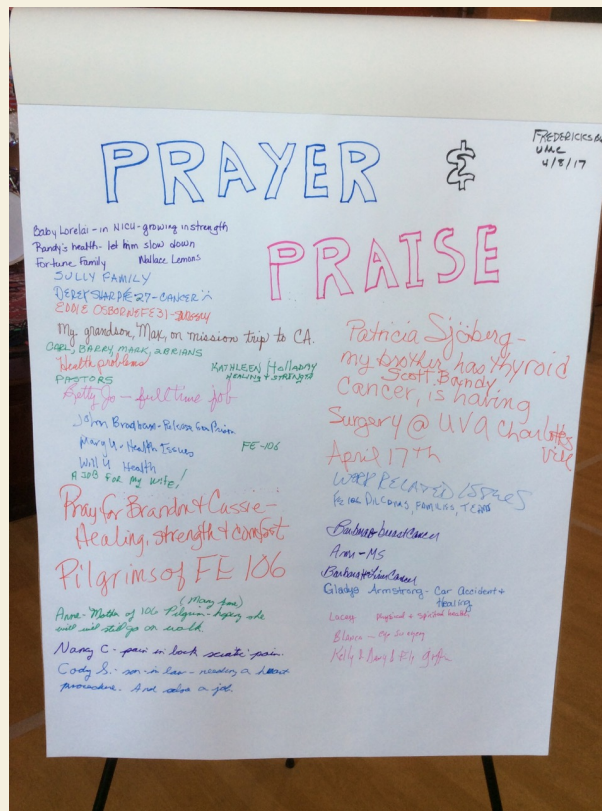 PRAYER &
PRAISE
UMC
4/8/17
Baby Lorelai - in NICU - growing in strength
Randy's health - let him slow down
Fortune Family Wallace Lemons
SULLY FAMILY
DEREK SHARPE 27 - CANCER
EDDIE OSBORNE FE 31 -
My grandson, Max, on mission trip to CA.
CARL, BARRY, MARK, 2 BRIANS
Health problems
KATHLEEN HOLLADAY
HEALING & STRENGTH
PASTORS
Betty Jo - full time job
John - Release from Prison
Mary U - Health Issues FE-106
Will U Health
A JOB FOR MY WIFE!
Pray for Brandon & Cassie -
Healing, strength & comfort
Pilgrims of FE 106
(Mary Jane)
Anne - Mother of 106 Pilgrim - hoping she
will still go on walk.
Nancy C. - pain in back sciatic pain.
Cody S. - son-in-law - needing a heart
procedure. And also a job.
Patricia Sjöberg -
my brother has thyroid
Scott Bandy.
Cancer, is having
Surgery @ UVA Charlottesville
April 17th
WORK RELATED ISSUES
FE 106 PILGRIMS, FAMILIES, TEAM
Barbara breast cancer
Ann - MS
Barbara Cancer
Gladys Armstrong - Car Accident &
Healing
Lacey physical & spiritual health
Blanca - eye surgery
Kelly &